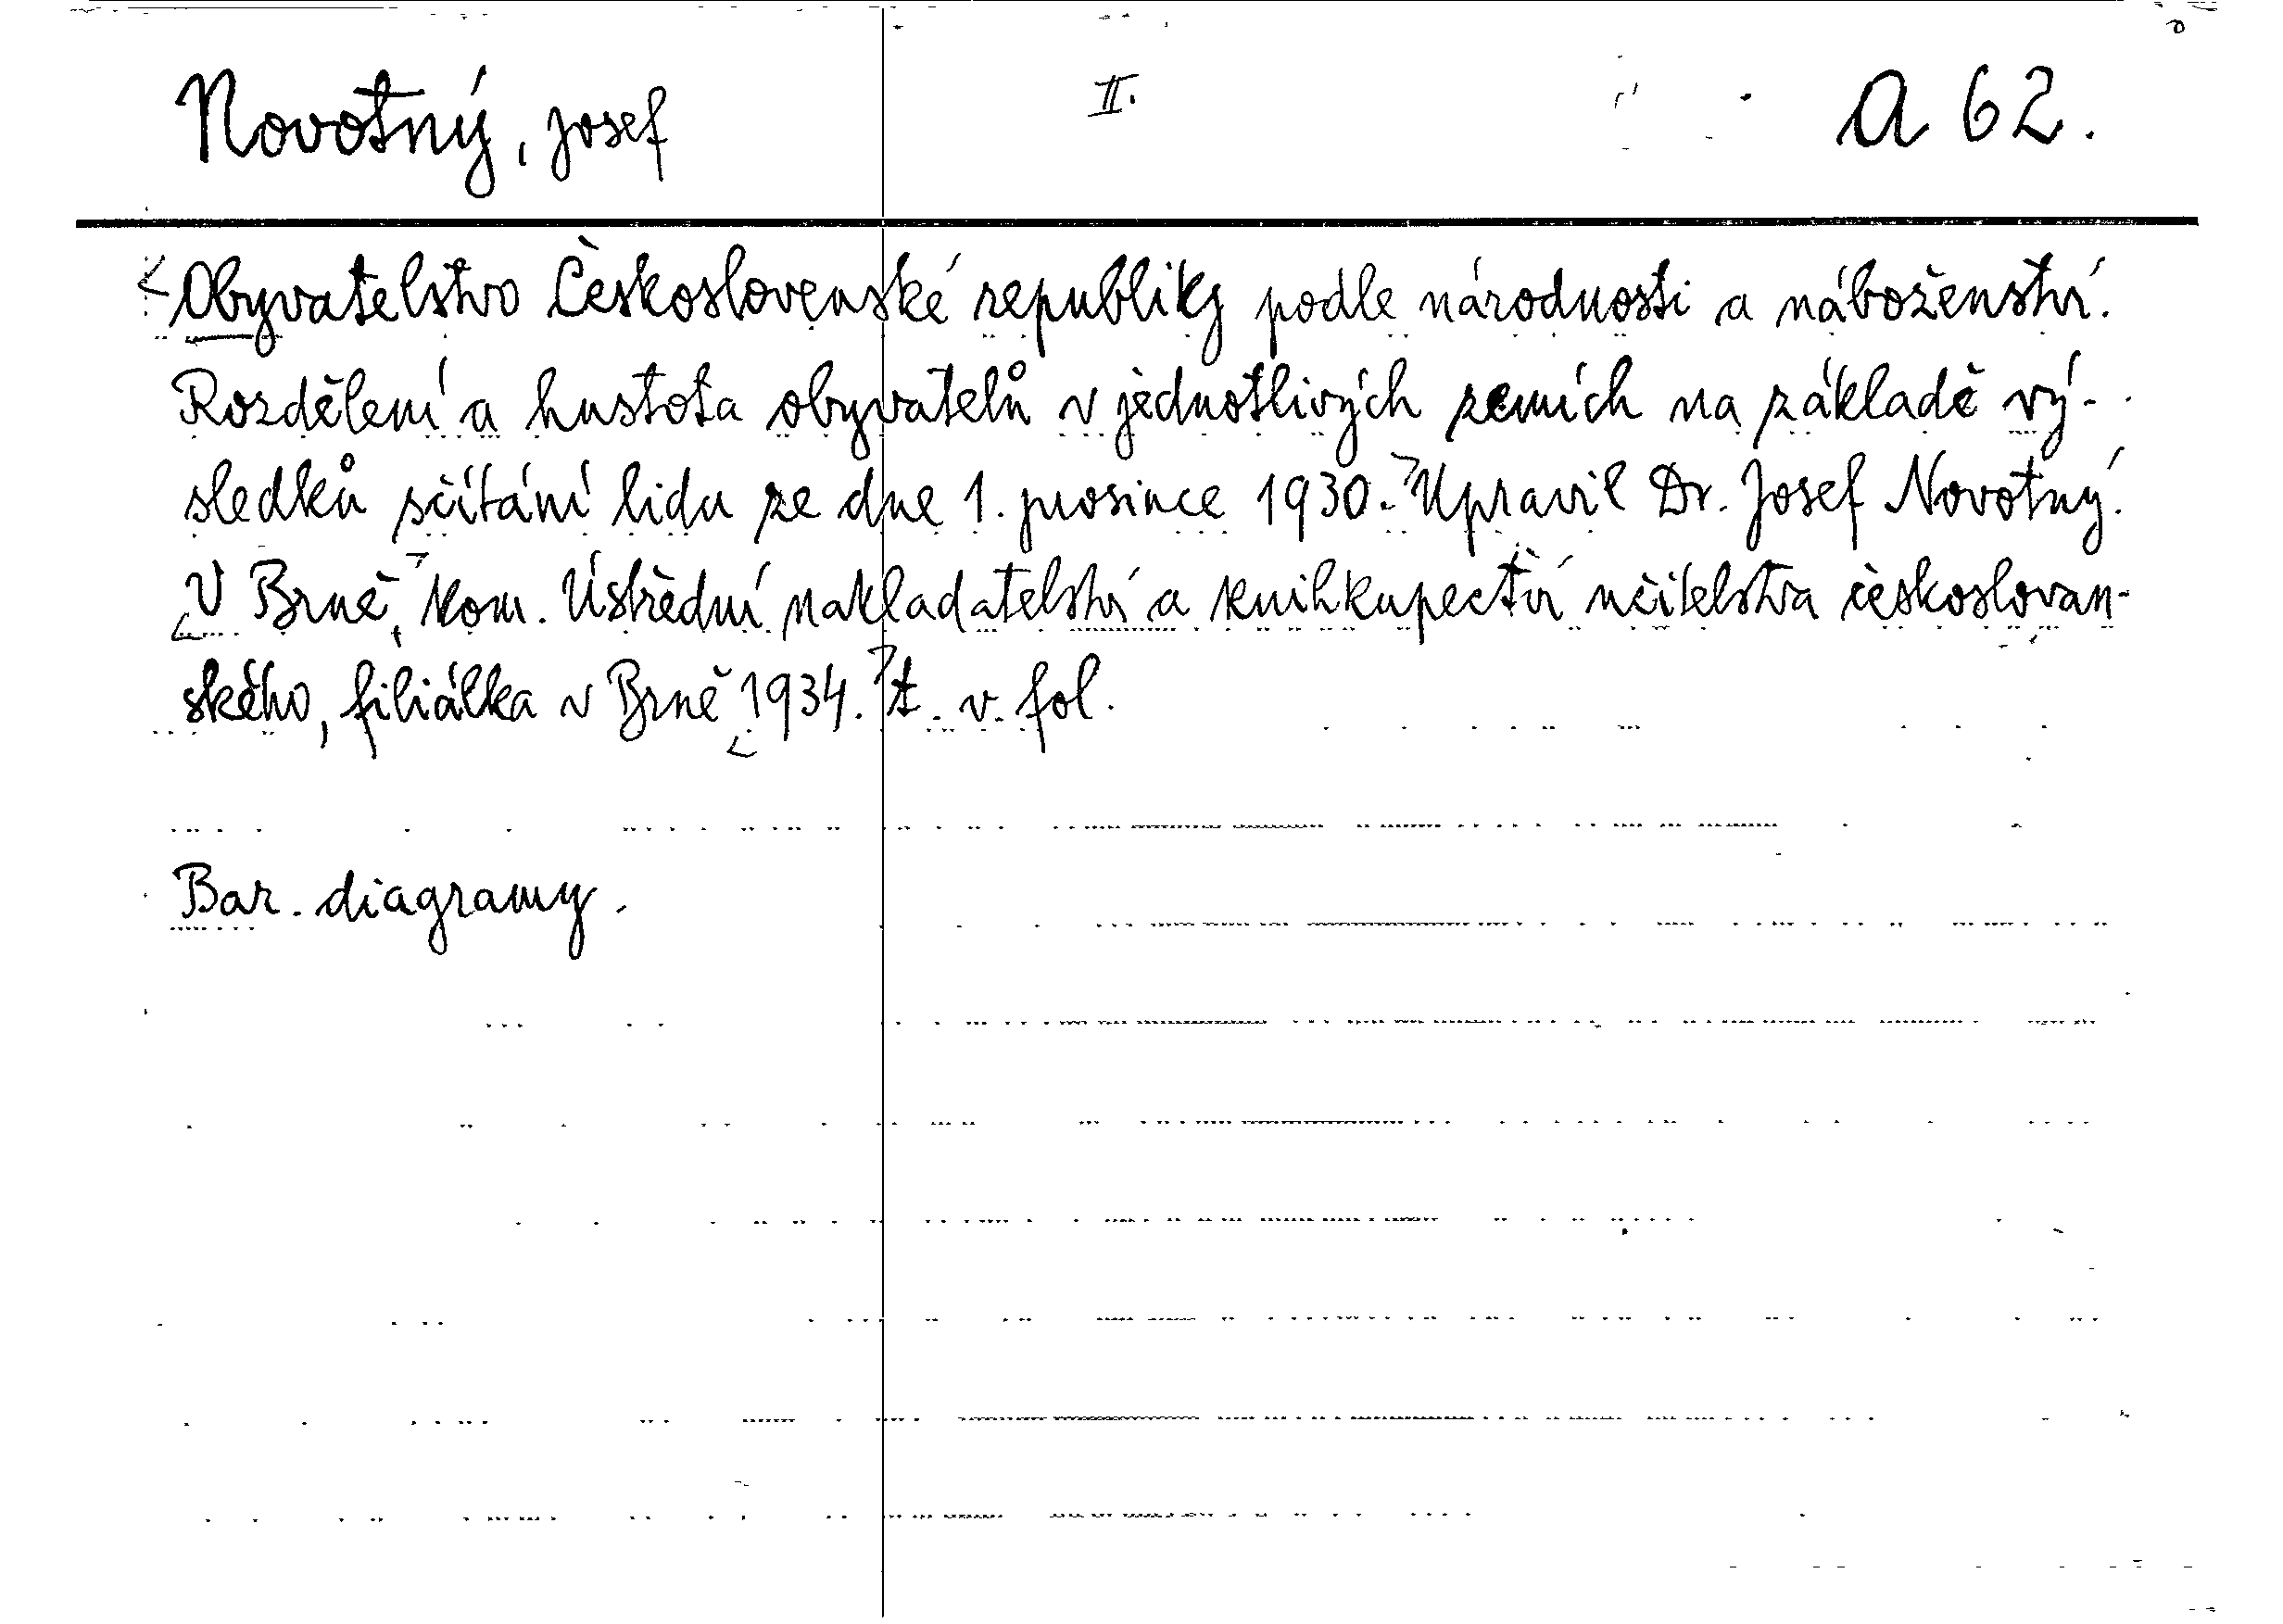 Novotný, Josef II. A 62.
Obyvatelstvo Československé republiky podle národnosti a náboženství.
Rozdělení a hustota obyvatelů v jednotlivých zemích na základě vý-
sledků sčítání lidu ze dne 1. prosince 1930. Upravil Dr. Josef Novotný.
V Brně, kom. Ústřední nakladatelství a knihkupectví učitelstva českoslovan-
ského, filiálka v Brně 1934. t. v. fol.
Bar. diagramy.